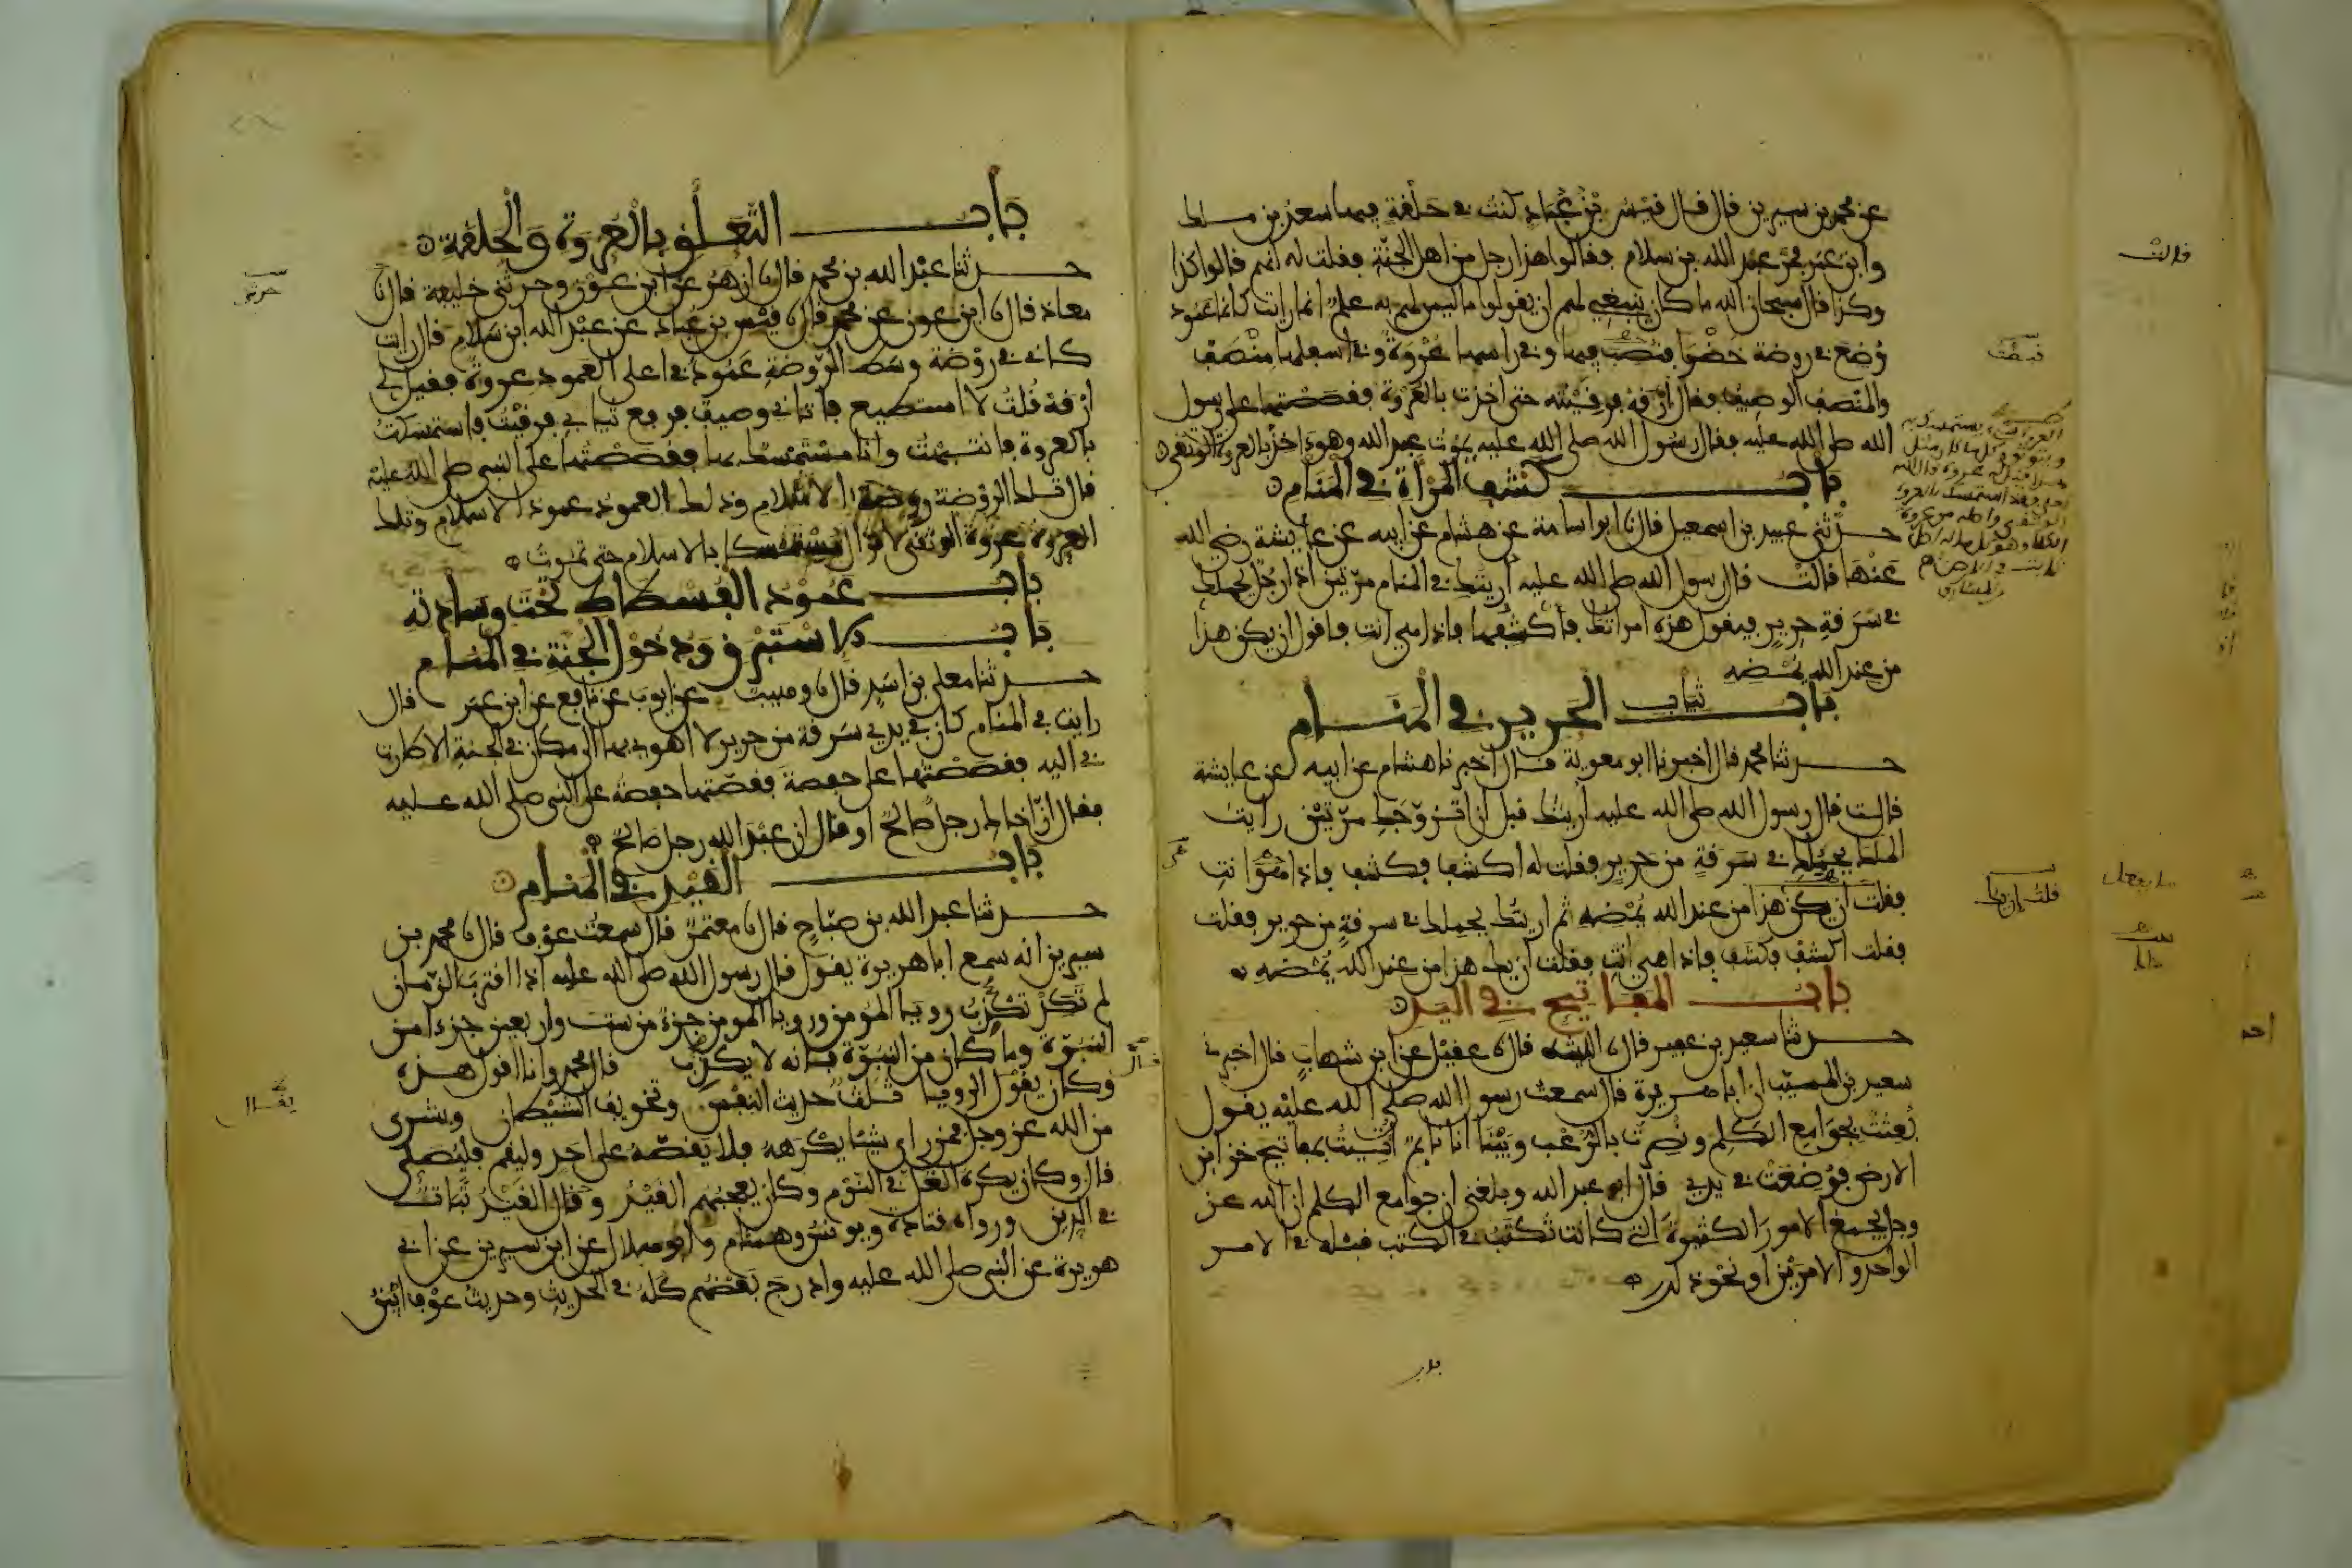 عن محمد بن سيرين قال قال قيس بن عباد كنت في حلقة فيها سعد بن ملك
وابن عمر فمر عبد الله بن سلام فقالوا هذا رجل من اهل الجنة فقلت له انهم قالوا كذا
وكذا قال سبحان الله ما كان ينبغي لهم ان يقولوا ما ليس لهم به علم انما رايت كانما عمود
وضع في روضة خضرا فنصب فيها وفي راسها عروة وفي اسفلها منصف
والمنصف الوصيف فقال ارقه فرقيته حتى اخذت بالعروة فقصصتها على رسول
الله صلى الله عليه فقال رسول الله صلى الله عليه يموت عبد الله وهو ءاخذ بالعروة الوثقى
باب كشف المرأة في المنام
حدثني عبيد بن اسمعيل قال نا ابو اسامة عن هشام عن ابيه عن عايشة رضي الله
عنها قالت قال رسول الله صلى الله عليه أريتك في المنام مرتين اذا رجل يحملك
في سرقة حرير فيقول هذه امراتك فأكشفها فاذا هي انت فاقول ان يكن هذا
من عند الله يمضه
باب ثياب الحرير في المنام
حدثنا محمد قال اخبرنا ابو معوية قال اخبرنا هشام عن ابيه عن عايشة
قالت قال رسول الله صلى الله عليه أريتك قبل ان اتزوجك مرتين رايت
الملك يحملك في سرقة من حرير فقلت له اكشف فكشف فاذا هو انت
فقلت ان يكن هذا من عند الله يمضه ثم اريتك يحملك في سرقة من حرير فقلت
اكشف فكشف فاذا هي انت فقلت ان يك هذا من عند الله يمضه
باب المفاتيح في اليد
حدثنا سعيد بن عفير قال نا الليث قال نا عقيل عن ابن شهاب قال اخبرني
سعيد بن المسيب ان ابا هريرة قال سمعت رسول الله صلى الله عليه يقول
بعثت بجوامع الكلم ونصرت بالرعب وبينا انا نايم أتيت بمفاتيح خزاين
الارض فوضعت في يدي قال ابو عبد الله وبلغني ان جوامع الكلم ان الله عز
وجل يجمع الامور الكثيرة التي كانت تكتب في الكتب قبله في الامر
الواحد والامرين او نحو ذلك
قالت
باب التعلق بالعروة والحلقة
حدثنا عبد الله بن محمد قال نا ازهر عن ابن عون وحدثني خليفة قال نا
معاذ قال نا ابن عون عن محمد قال نا قيس بن عباد عن عبد الله ابن سلام قال رايت
كاني في روضة وسط الروضة عمود في اعلى العمود عروة فقيل لي
ارقه قلت لا استطيع فاتاني وصيف فرفع ثيابي فرقيت فاستمسكت
بالعروة فانتبهت وانا مستمسك بها فقصصتها على النبي صلى الله عليه
قال تلك الروضة روضة الاسلام وذلك العمود عمود الاسلام وتلك
العروة عروة الوثقى لا تزال مستمسكا بالاسلام حتى تموت
باب عمود الفسطاط تحت وسادته
باب الاستبرق ودخول الجنة في المنام
حدثنا معلى بن اسد قال نا وهيب عن ايوب عن نافع عن ابن عمر قال
رايت في المنام كان في يدي سرقة من حرير لا اهوي بها الى مكان في الجنة الا طارت
بي اليه فقصصتها على حفصة فقصتها حفصة على النبي صلى الله عليه
فقال ان اخاك رجل صالح او قال ان عبد الله رجل صالح
باب القيد في المنام
حدثنا عبد الله بن صباح قال نا معتمر قال سمعت عوفا قال نا محمد بن
سيرين انه سمع ابا هريرة يقول قال رسول الله صلى الله عليه اذا اقترب الزمان
لم تكد تكذب رويا المومن ورويا المومن جزء من ستة واربعين جزءا من
النبوة وما كان من النبوة فانه لا يكذب قال محمد وانا اقول هذه
وكان يقول الرويا ثلث حديث النفس وتخويف الشيطان وبشرى
من الله عز وجل فمن راى شيئا يكرهه فلا يقصه على احد وليقم فليصلي
قال وكان يكره الغل في النوم وكان يعجبهم القيد وقال القيد ثبات
في الدين ورواه قتادة ويونس وهشام وابو هلال عن ابن سيرين عن ابي
هريرة عن النبي صلى الله عليه وادرج بعضهم كله في الحديث وحديث عوف ابين
حدثني
يقال